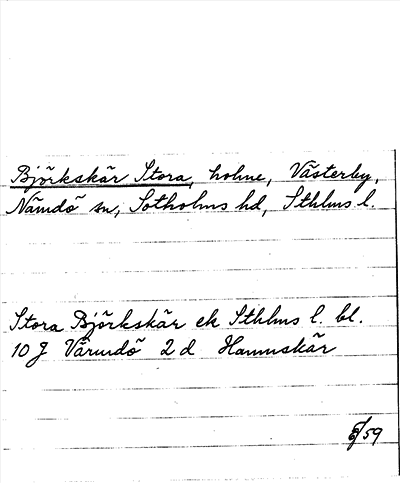 Björkskär Stora, holme, Västerby,
Nämdö sn, Sotholms hd, Sthlms l.
Stora Björkskär ek Sthlms l. bl.
10 J Värmdö 2 d Hamnskär
/59